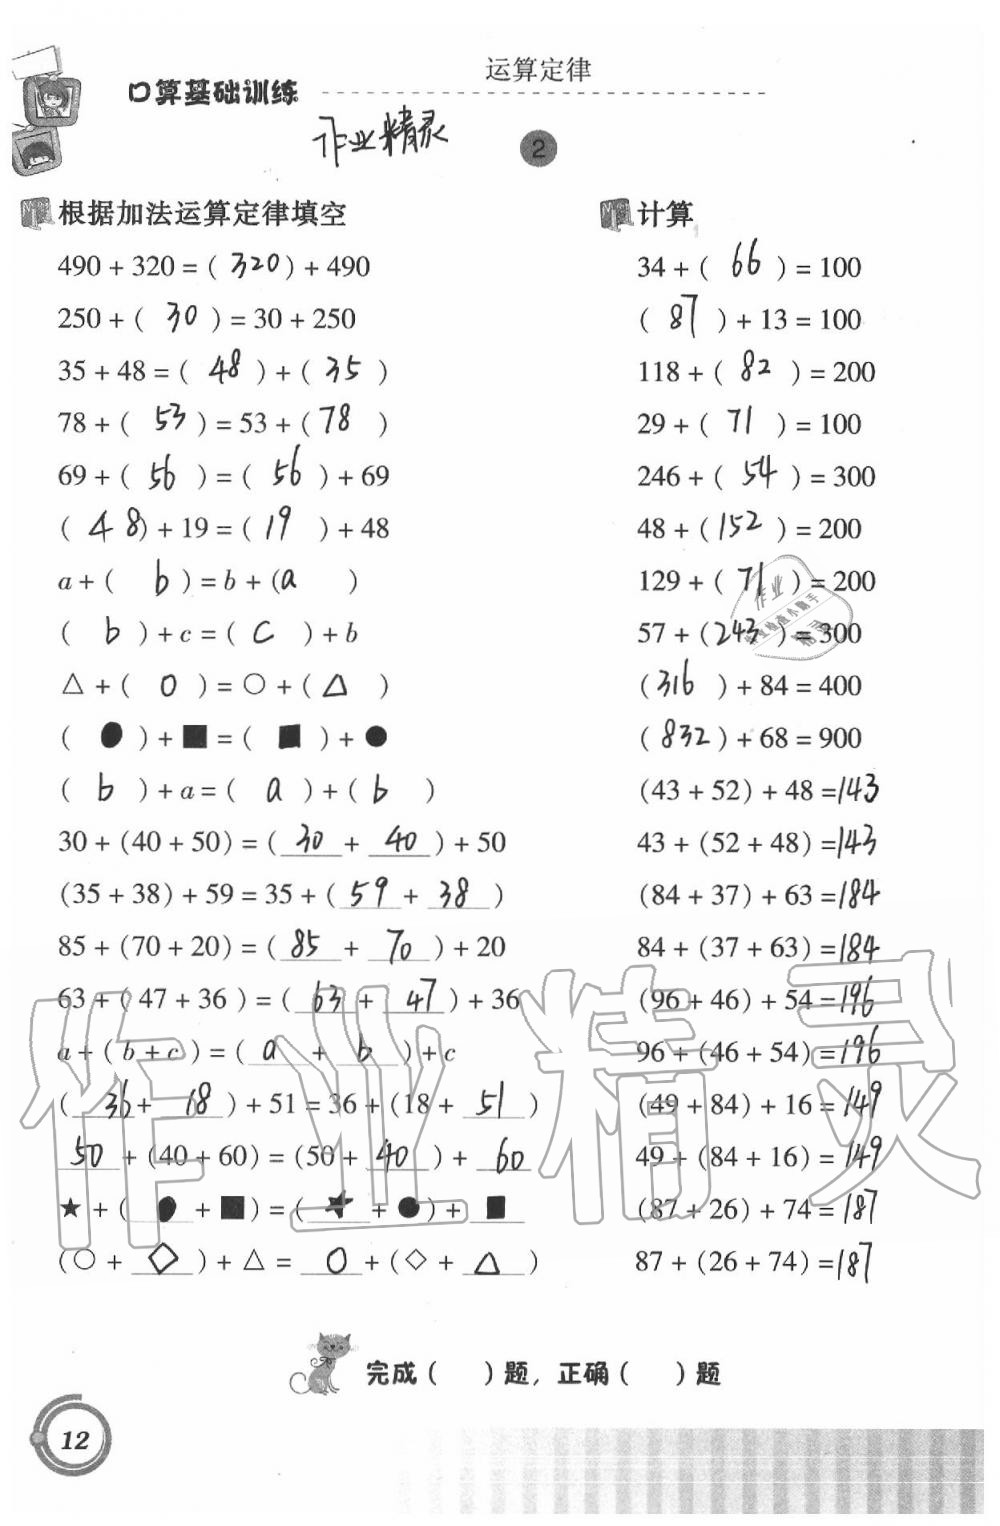 运算定律
口算基础训练
作业精灵
2
根据加法运算定律填空
490 + 320 = ( 320 ) + 490
250 + ( 30 ) = 30 + 250
35 + 48 = ( 48 ) + ( 35 )
78 + ( 53 ) = 53 + ( 78 )
69 + ( 56 ) = ( 56 ) + 69
( 48 ) + 19 = ( 19 ) + 48
a + ( b ) = b + ( a )
( b ) + c = ( c ) + b
△ + ( ○ ) = ○ + ( △ )
( ● ) + ■ = ( ■ ) + ●
( b ) + a = ( a ) + ( b )
30 + (40 + 50) = ( 30 + 40 ) + 50
(35 + 38) + 59 = 35 + ( 59 + 38 )
85 + (70 + 20) = ( 85 + 70 ) + 20
63 + ( 47 + 36 ) = ( 63 + 47 ) + 36
a + ( b + c ) = ( a + b ) + c
( 36 + 18 ) + 51 = 36 + (18 + 51 )
50 + (40 + 60) = (50 + 40 ) + 60
★ + ( ● + ■ ) = ( ★ + ● ) + ■
(○ + ◇ ) + △ = ○ + (◇ + △ )
计算
34 + ( 66 ) = 100
( 87 ) + 13 = 100
118 + ( 82 ) = 200
29 + ( 71 ) = 100
246 + ( 54 ) = 300
48 + ( 152 ) = 200
129 + ( 71 ) = 200
57 + ( 243 ) = 300
( 316 ) + 84 = 400
( 832 ) + 68 = 900
(43 + 52) + 48 = 143
43 + (52 + 48) = 143
(84 + 37) + 63 = 184
84 + (37 + 63) = 184
(96 + 46) + 54 = 196
96 + (46 + 54) = 196
(49 + 84) + 16 = 149
49 + (84 + 16) = 149
(87 + 26) + 74 = 187
87 + (26 + 74) = 187
作业精灵
完成 ( ) 题, 正确 ( ) 题
12